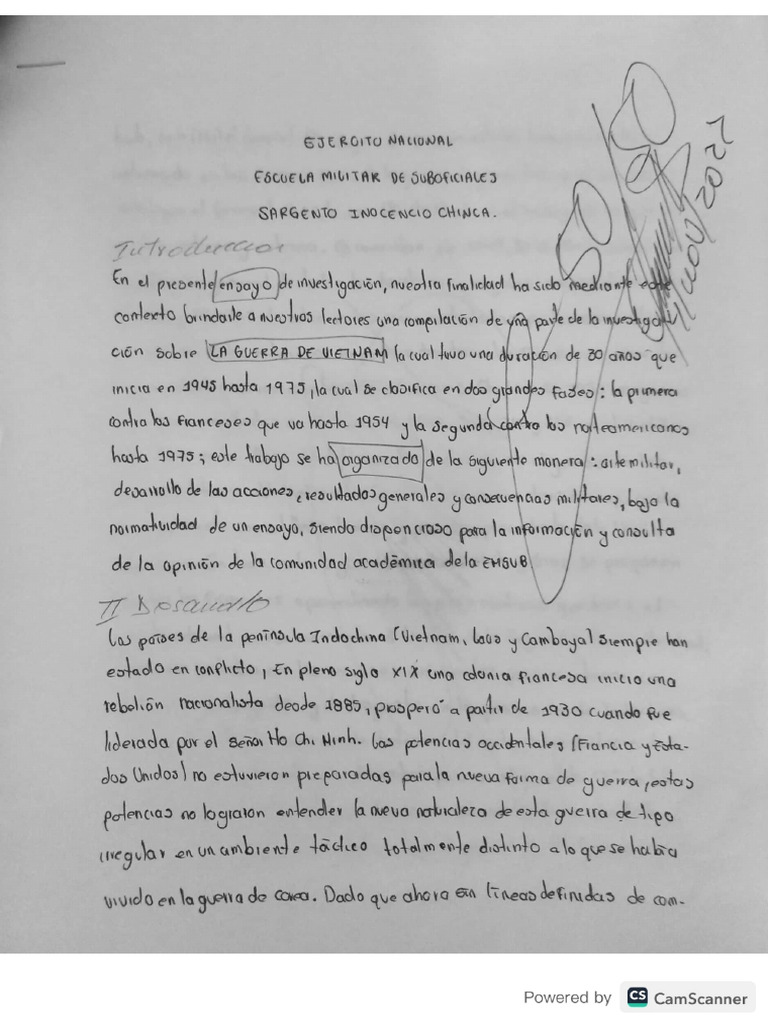 EJERCITO NACIONAL
ESCUELA MILITAR DE SUBOFICIALES
SARGENTO INOCENCIO CHINCA.
50/50
/nov/2021
Introduccion
En el presente ensayo de investigación, nuestra finalidad ha sido mediante este
contexto brindarle a nuestros lectores una compilación de una parte de la investiga
ción sobre LA GUERRA DE VIETNAM la cual tuvo una duración de 30 años que
inicia en 1945 hasta 1975, la cual se clasifica en dos grandes fases: la primera
contra los franceses que va hasta 1954 y la segunda contra los norteamericanos
hasta 1975; este trabajo se ha organizado de la siguiente manera: arte militar,
desarrollo de las acciones, resultados generales y consecuencias militares, bajo la
normatividad de un ensayo, siendo disponcioso para la información y consulta
de la opinión de la comunidad académica de la EMSUB
II Desarrollo
Los países de la península Indochina (Vietnam, Laos y Camboya) siempre han
estado en conflicto, En pleno siglo XIX una colonia francesa inicio una
rebelión nacionalista desde 1885, prosperó a partir de 1930 cuando fue
liderada por el señor Ho Chi Minh. Las potencias occidentales (Francia y Esta-
dos Unidos) no estuvieron preparadas para la nueva forma de guerra, estas
potencias no lograron entender la nueva naturaleza de esta guerra de tipo
irregular en un ambiente táctico totalmente distinto a lo que se había
vivido en la guerra de corea. Dado que ahora sin líneas definidas de com-
Powered by CS CamScanner